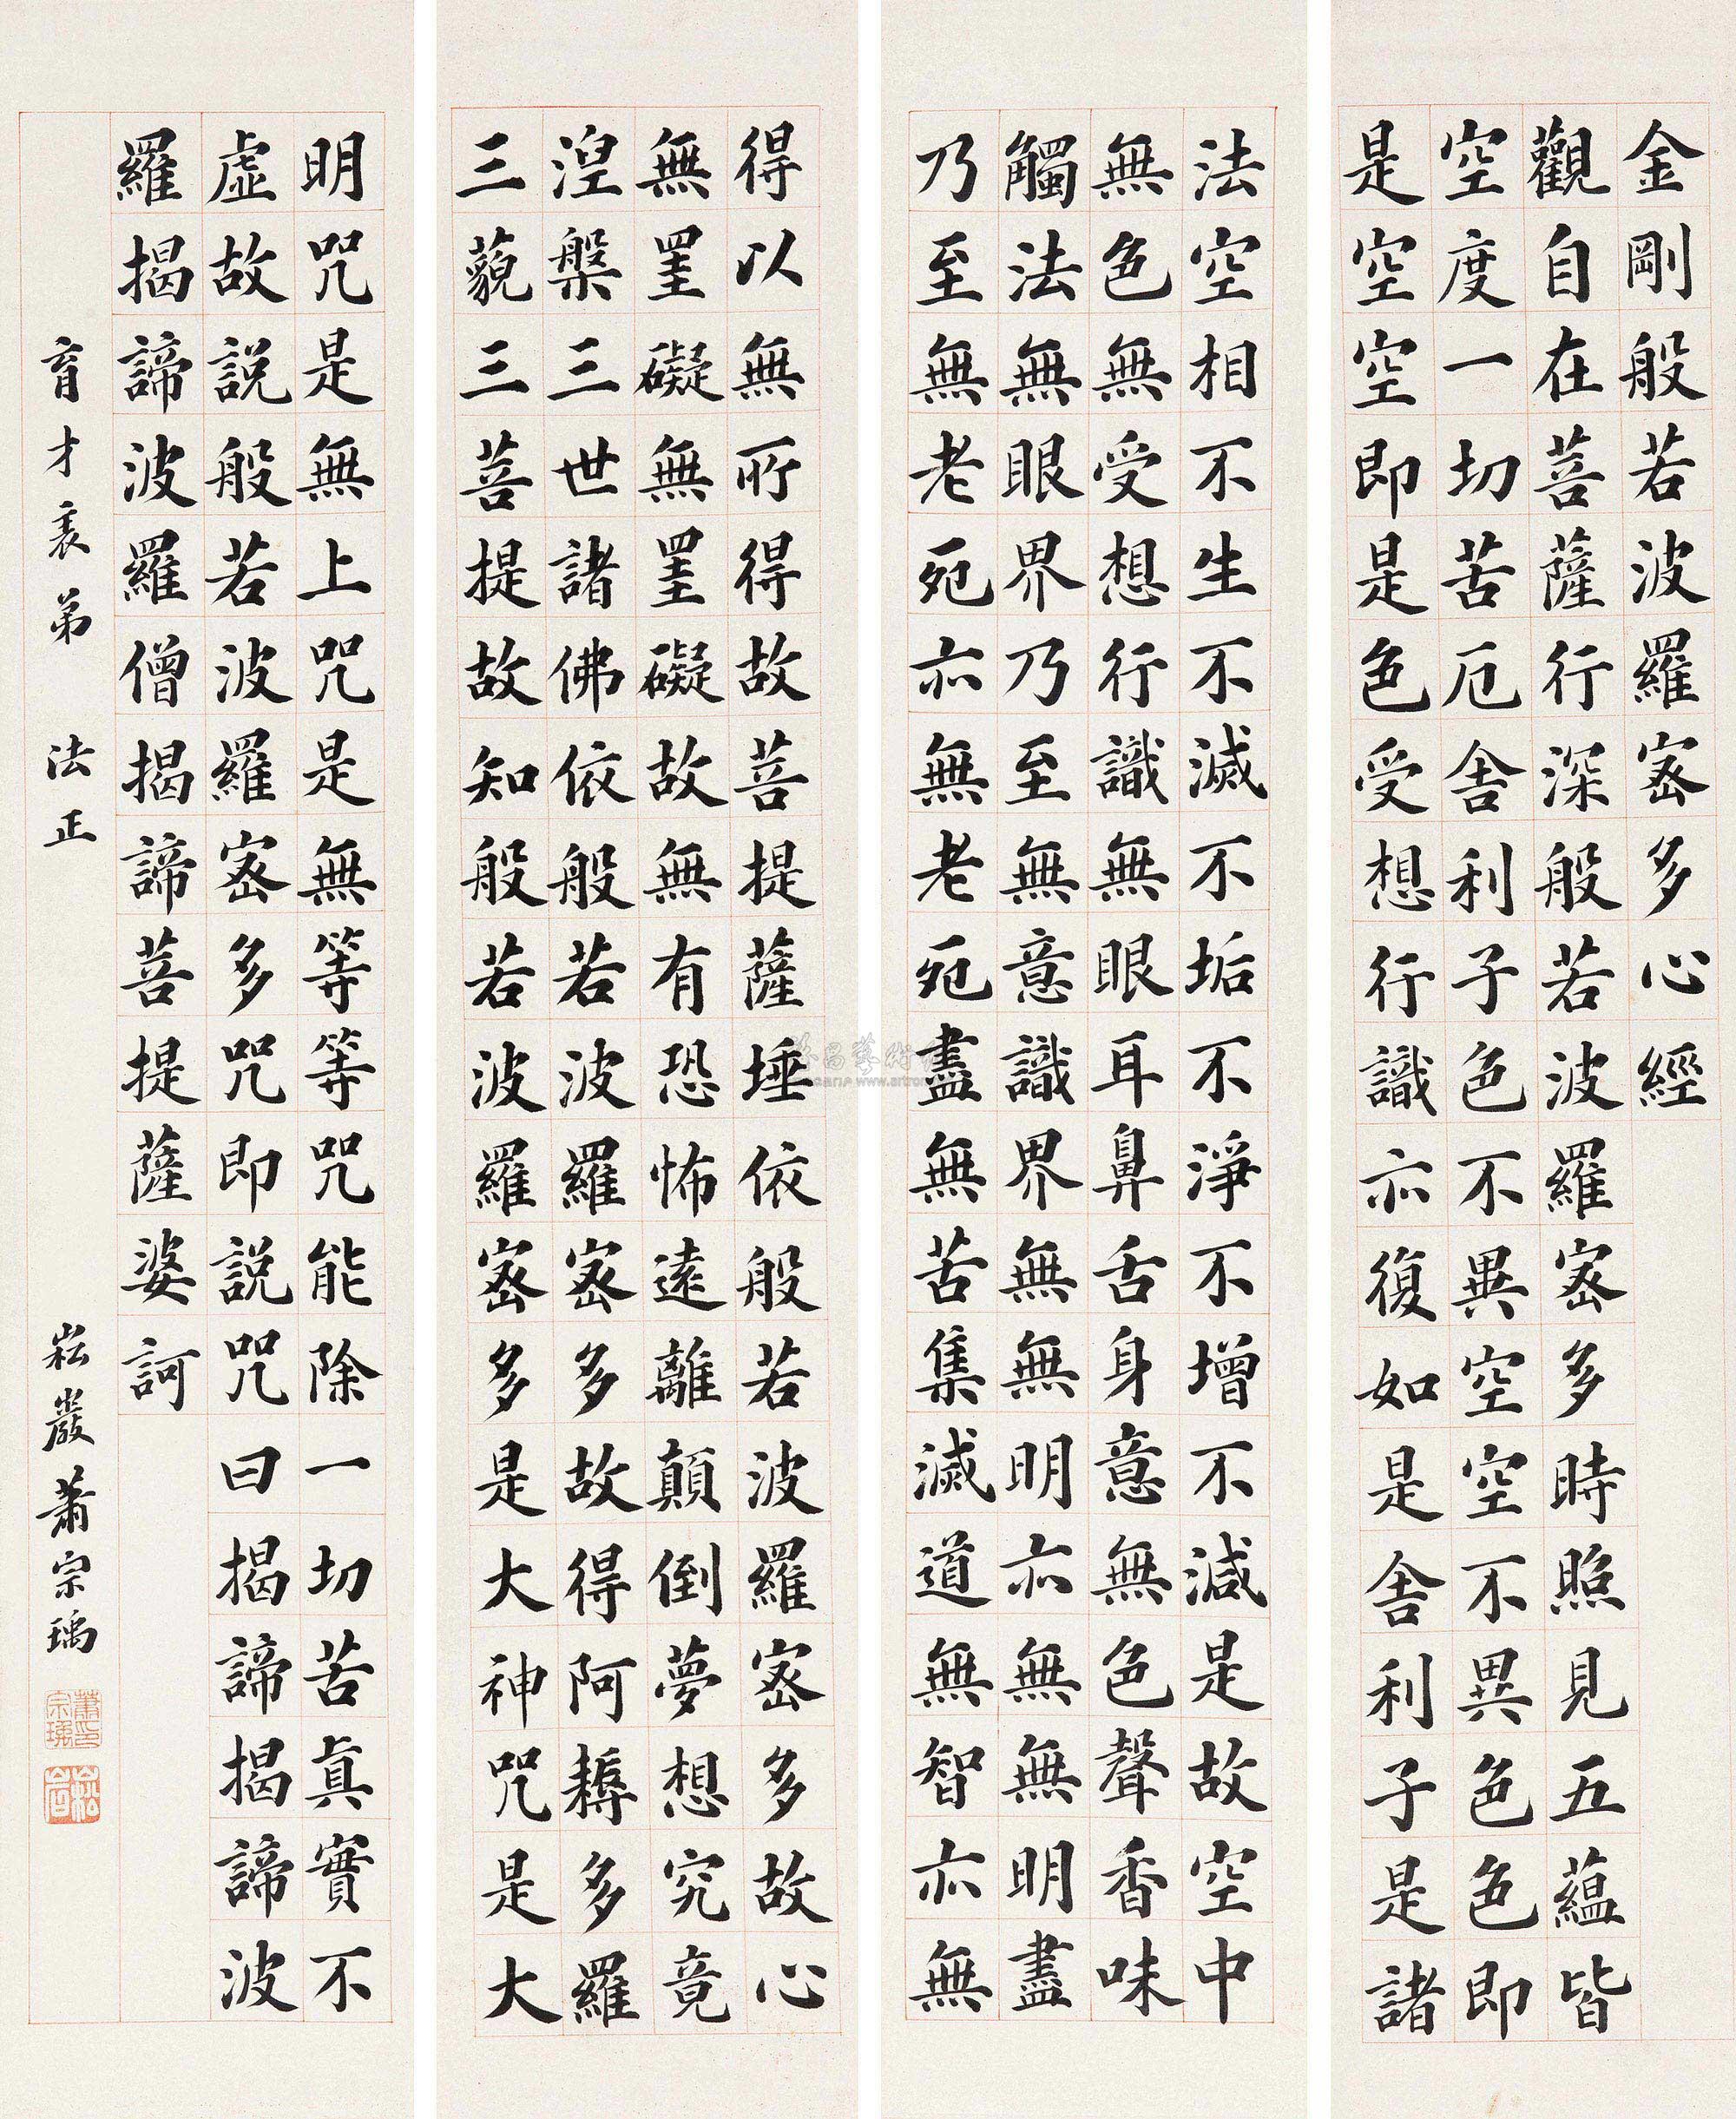 金剛般若波羅宻多心經
觀自在菩薩行深般若波羅宻多時照見五蘊皆
空度一切苦厄舍利子色不異空空不異色色即
是空空即是色受想行識亦復如是舍利子是諸
法空相不生不滅不垢不淨不增不減是故空中
無色無受想行識無眼耳鼻舌身意無色聲香味
觸法無眼界乃至無意識界無無明亦無無明盡
乃至無老死亦無老死盡無苦集滅道無智亦無
得以無所得故菩提薩埵依般若波羅宻多故心
無罣礙無罣礙故無有恐怖遠離顛倒夢想究竟
涅槃三世諸佛依般若波羅宻多故得阿耨多羅
三藐三菩提故知般若波羅宻多是大神咒是大
明咒是無上咒是無等等咒能除一切苦真實不
虛故說般若波羅宻多咒即說咒曰揭諦揭諦波
羅揭諦波羅僧揭諦菩提薩婆訶
育才表弟 法正 崧巖蕭宗瑀
蕭印宗瑀
崧岩